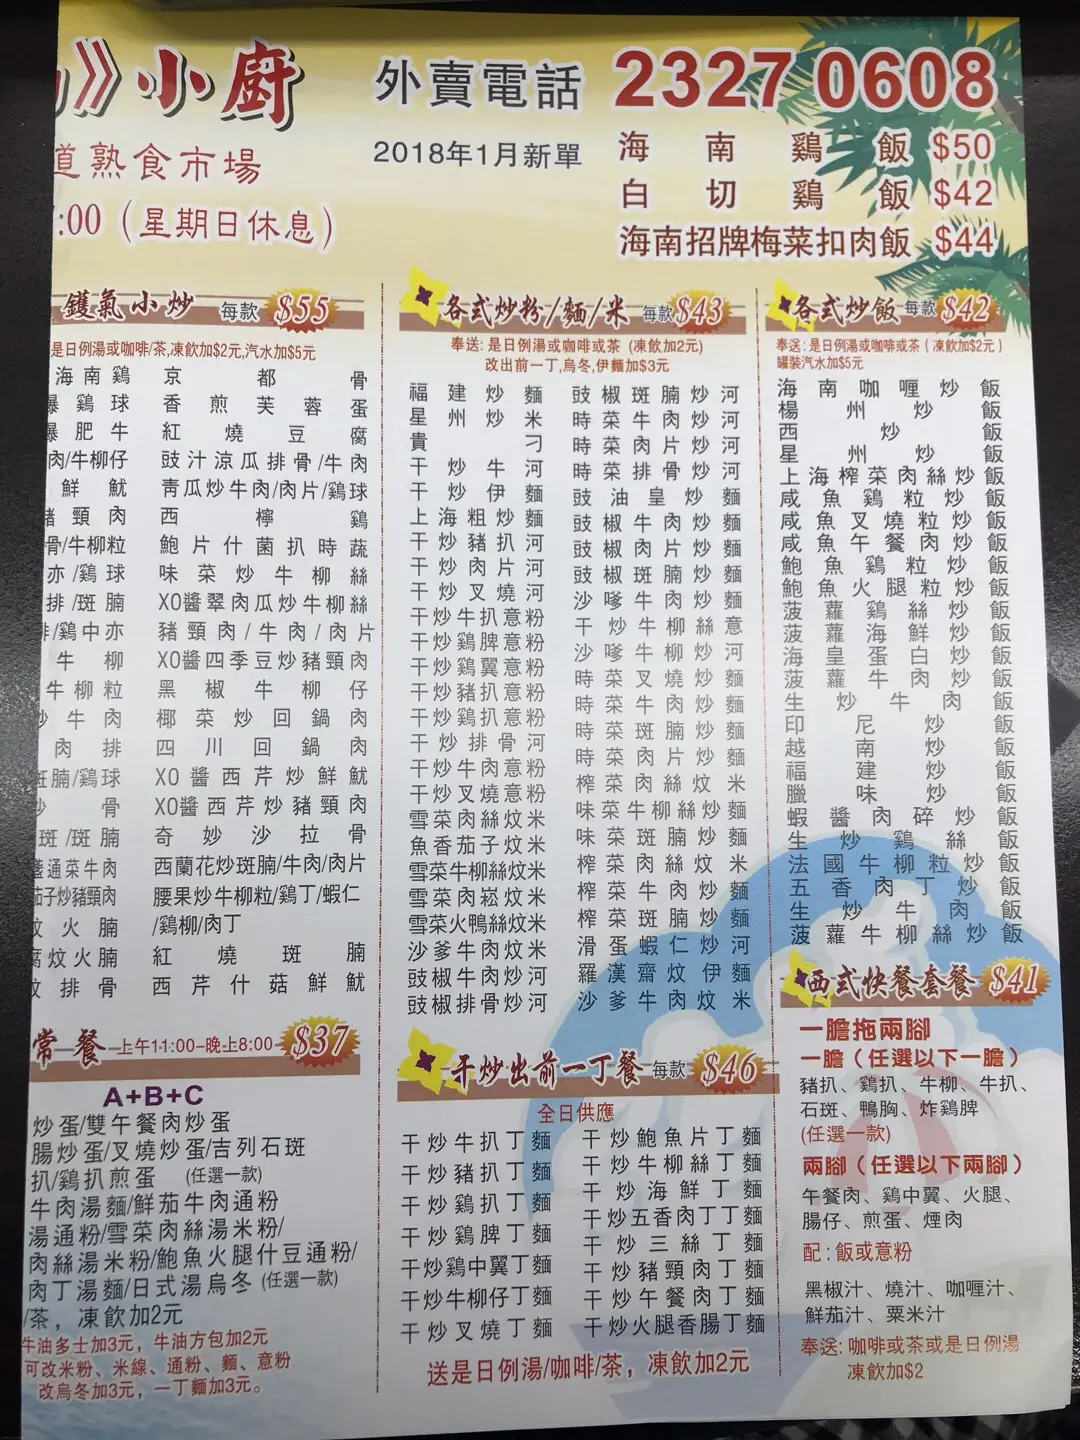 》小廚
外賣電話 2327 0608
2018年1月新單
道熟食市場
:00（星期日休息）
海南鷄飯 $50
白切鷄飯 $42
海南招牌梅菜扣肉飯 $44
鑊氣小炒 每款 $55
是日例湯或咖啡/茶,凍飲加$2元,汽水加$5元
海南鷄
鷄球
肥牛
肉/牛柳仔
鮮魷
頸肉
骨/牛柳粒
亦/鷄球
排/斑腩
/鷄中亦
牛柳
牛柳粒
牛肉
肉排
斑腩/鷄球
骨
斑/斑腩
通菜牛肉
茄子炒豬頸肉
火腩
炆火腩
排骨
京都骨
香煎芙蓉蛋
紅燒豆腐
豉汁涼瓜排骨/牛肉
青瓜炒牛肉/肉片/鷄球
西檸鷄
鮑片什菌扒時蔬
味菜炒牛柳絲
XO醬翠肉瓜炒牛柳絲
豬頸肉/牛肉/肉片
XO醬四季豆炒豬頸肉
黑椒牛柳仔
椰菜炒回鍋肉
四川回鍋肉
XO醬西芹炒鮮魷
XO醬西芹炒豬頸肉
奇妙沙拉骨
西蘭花炒斑腩/牛肉/肉片
腰果炒牛柳粒/鷄丁/蝦仁
/鷄柳/肉丁
紅燒斑腩
西芹什菇鮮魷
常餐 上午11:00-晚上8:00 $37
A+B+C
炒蛋/雙午餐肉炒蛋
腸炒蛋/叉燒炒蛋/吉列石斑
扒/鷄扒煎蛋 (任選一款)
牛肉湯麵/鮮茄牛肉通粉
湯通粉/雪菜肉絲湯米粉/
肉絲湯米粉/鮑魚火腿什豆通粉/
肉丁湯麵/日式湯烏冬 (任選一款)
/茶，凍飲加2元
牛油多士加3元，牛油方包加2元
可改米粉、米線、通粉、麵、意粉
改烏冬加3元，一丁麵加3元。
各式炒粉/麵/米 每款 $43
奉送:是日例湯或咖啡或茶 (凍飲加2元)
改出前一丁,烏冬,伊麵加$3元
福建炒麵
星州炒米
貴刁
干炒牛河
干炒伊麵
上海粗炒麵
干炒豬扒河
干炒肉片河
干炒叉燒河
干炒牛扒意粉
干炒鷄脾意粉
干炒鷄翼意粉
干炒豬扒意粉
干炒鷄扒意粉
干炒排骨河
干炒牛肉意粉
干炒叉燒意粉
雪菜肉絲炆米
魚香茄子炆米
雪菜牛柳絲炆米
雪菜肉崧炆米
雪菜火鴨絲炆米
沙爹牛肉炆米
豉椒牛肉炒河
豉椒排骨炒河
豉椒斑腩炒河
時菜牛肉炒河
時菜肉片炒河
時菜排骨炒河
豉油皇炒麵
豉椒牛肉炒麵
豉椒肉片炒麵
豉椒斑腩炒麵
沙嗲牛肉炒麵
干炒牛柳絲意
沙嗲牛柳炒河
時菜叉燒炒麵
時菜牛肉炒麵
時菜斑腩炒麵
時菜肉片炒麵
榨菜肉絲炆米
味菜牛柳絲炒麵
味菜斑腩炒麵
榨菜肉絲炆米
榨菜牛肉炒麵
榨菜斑腩炒麵
滑蛋蝦仁炒河
羅漢齋炆伊麵
沙爹牛肉炆米
干炒出前一丁餐 每款 $46
全日供應
干炒牛扒丁麵
干炒豬扒丁麵
干炒鷄扒丁麵
干炒鷄脾丁麵
干炒鷄中翼丁麵
干炒牛柳仔丁麵
干炒叉燒丁麵
干炒鮑魚片丁麵
干炒牛柳絲丁麵
干炒海鮮丁麵
干炒五香肉丁丁麵
干炒三絲丁麵
干炒豬頸肉丁麵
干炒午餐肉丁麵
干炒火腿香腸丁麵
送是日例湯/咖啡/茶，凍飲加2元
各式炒飯 每款 $42
奉送:是日例湯或咖啡或茶 (凍飲加$2元)
罐裝汽水加$5元
海南咖喱炒飯
楊州炒飯
西炒飯
星州炒飯
上海榨菜肉絲炒飯
咸魚鷄粒炒飯
咸魚叉燒粒炒飯
咸魚午餐肉炒飯
鮑魚鷄粒炒飯
鮑魚火腿粒炒飯
菠蘿鷄絲炒飯
菠蘿海鮮炒飯
海皇蛋白炒飯
菠蘿牛肉炒飯
生炒牛肉飯
印尼炒飯
越南炒飯
福建炒飯
臘味炒飯
蝦醬肉碎炒飯
生炒鷄絲飯
法國牛柳粒炒飯
五香肉丁炒飯
生炒牛肉飯
菠蘿牛柳絲炒飯
西式快餐套餐 $41
一膽拖兩腳
一膽（任選以下一膽）
豬扒、鷄扒、牛柳、牛扒、
石斑、鴨胸、炸鷄脾
(任選一款)
兩腳（任選以下兩腳）
午餐肉、鷄中翼、火腿、
腸仔、煎蛋、煙肉
配:飯或意粉
黑椒汁、燒汁、咖喱汁、
鮮茄汁、粟米汁
奉送:咖啡或茶或是日例湯
凍飲加$2